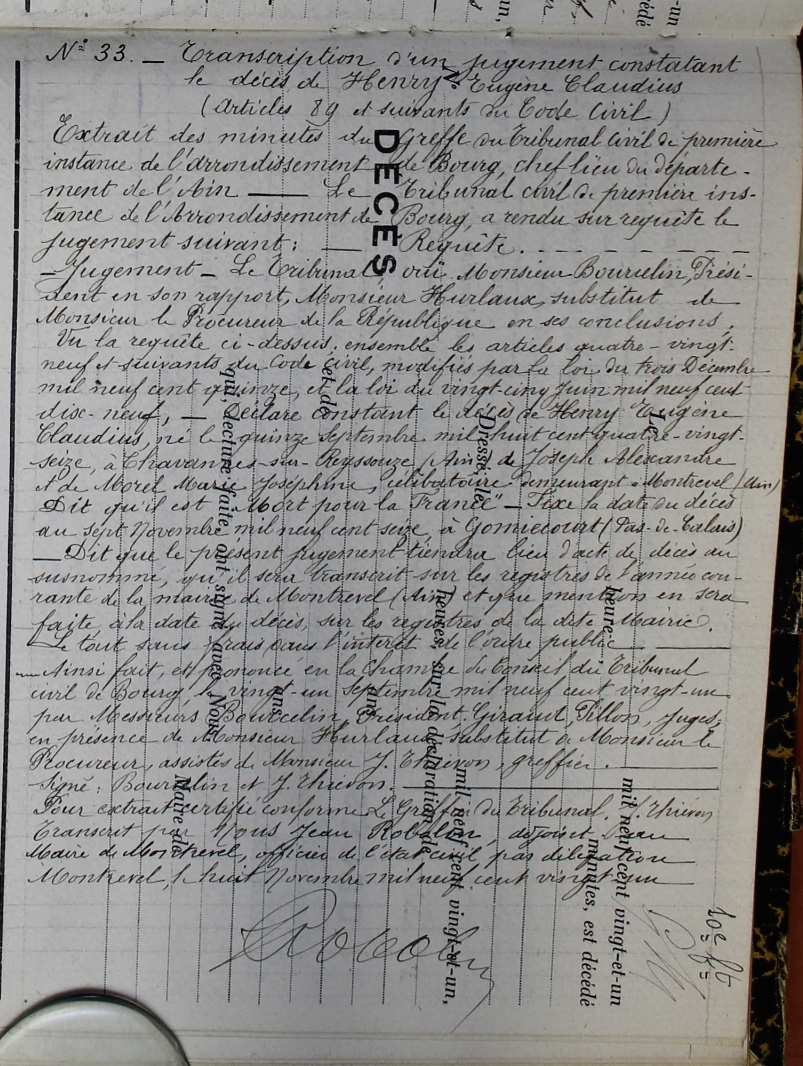 N° 33. — Transcription d'un jugement constatant
le décès de Henry Eugène Claudius
(Articles 89 et suivants du Code Civil)
Extrait des minutes du Greffe du Tribunal Civil de première
instance de l'arrondissement de Bourg, chef lieu du départe-
ment de l'Ain — Le Tribunal civil de première ins-
tance de l'Arrondissement de Bourg, a rendu sur requête le
jugement suivant : — Requête. — — — —
— Jugement — Le Tribunal ouï Monsieur Bourcelin, Prési-
dent en son rapport, Monsieur Hurlaux, substitut de
Monsieur le Procureur de la République en ses conclusions,
Vu la requête ci-dessus, ensemble les articles quatre-vingt-
neuf et suivants du Code Civil, modifiés par la loi du trois Décembre
mil neuf cent quinze, et la loi du vingt-cinq Juin mil neuf cent
disc-neuf, — Déclare constant le décès de Henry Eugène
Claudius, né le quinze Septembre mil huit cent quatre-vingt-
seize, à Chavannes-sur-Reyssouze (Ain) de Joseph Alexandre
et de Morel Marie Joséphine, célibataire demeurant à Montrevel (Ain)
Dit qu'il est "Mort pour la France" — Fixe la date du décès
au sept Novembre mil neuf cent seize à Gomiecourt (Pas-de-Calais)
— Dit que le présent jugement tiendra lieu d'acte de décès du
susnommé, qu'il sera transcrit sur les registres de l'année cou-
rante de la mairie de Montrevel (Ain) et que mention en sera
faite à la date du décès, sur les registres de la dite Mairie.
Le tout sans frais dans l'intérêt de l'ordre public —
— Ainsi fait, et prononcé en la Chambre du Conseil du Tribunal
civil de Bourg, le vingt-un septembre mil neuf cent vingt-un
par Messieurs Bourcelin, Président, Giraud, Pillon, Juges,
en présence de Monsieur Hurlaux substitut de Monsieur le
Procureur, assistés de Monsieur J. Thievon, greffier. —
Signé : Bourcelin et J. Thievon. —
Pour extrait certifié conforme Le Greffier du Tribunal. J. Thievon
Transcrit par Nous Jean Robelin, adjoint au
Maire de Montrevel, officier de l'état civil par délégation
Montrevel, le huit Novembre mil neuf cent vingt-un
DÉCÈS
Le
heure
mil neuf cent vingt-et-un
minutes, est décédé
et de
Dressé le
mil neuf cent vingt-et-un,
heures, sur la déclaration de
ans
qui, lecture faite, ont signé avec Nous
Maire de